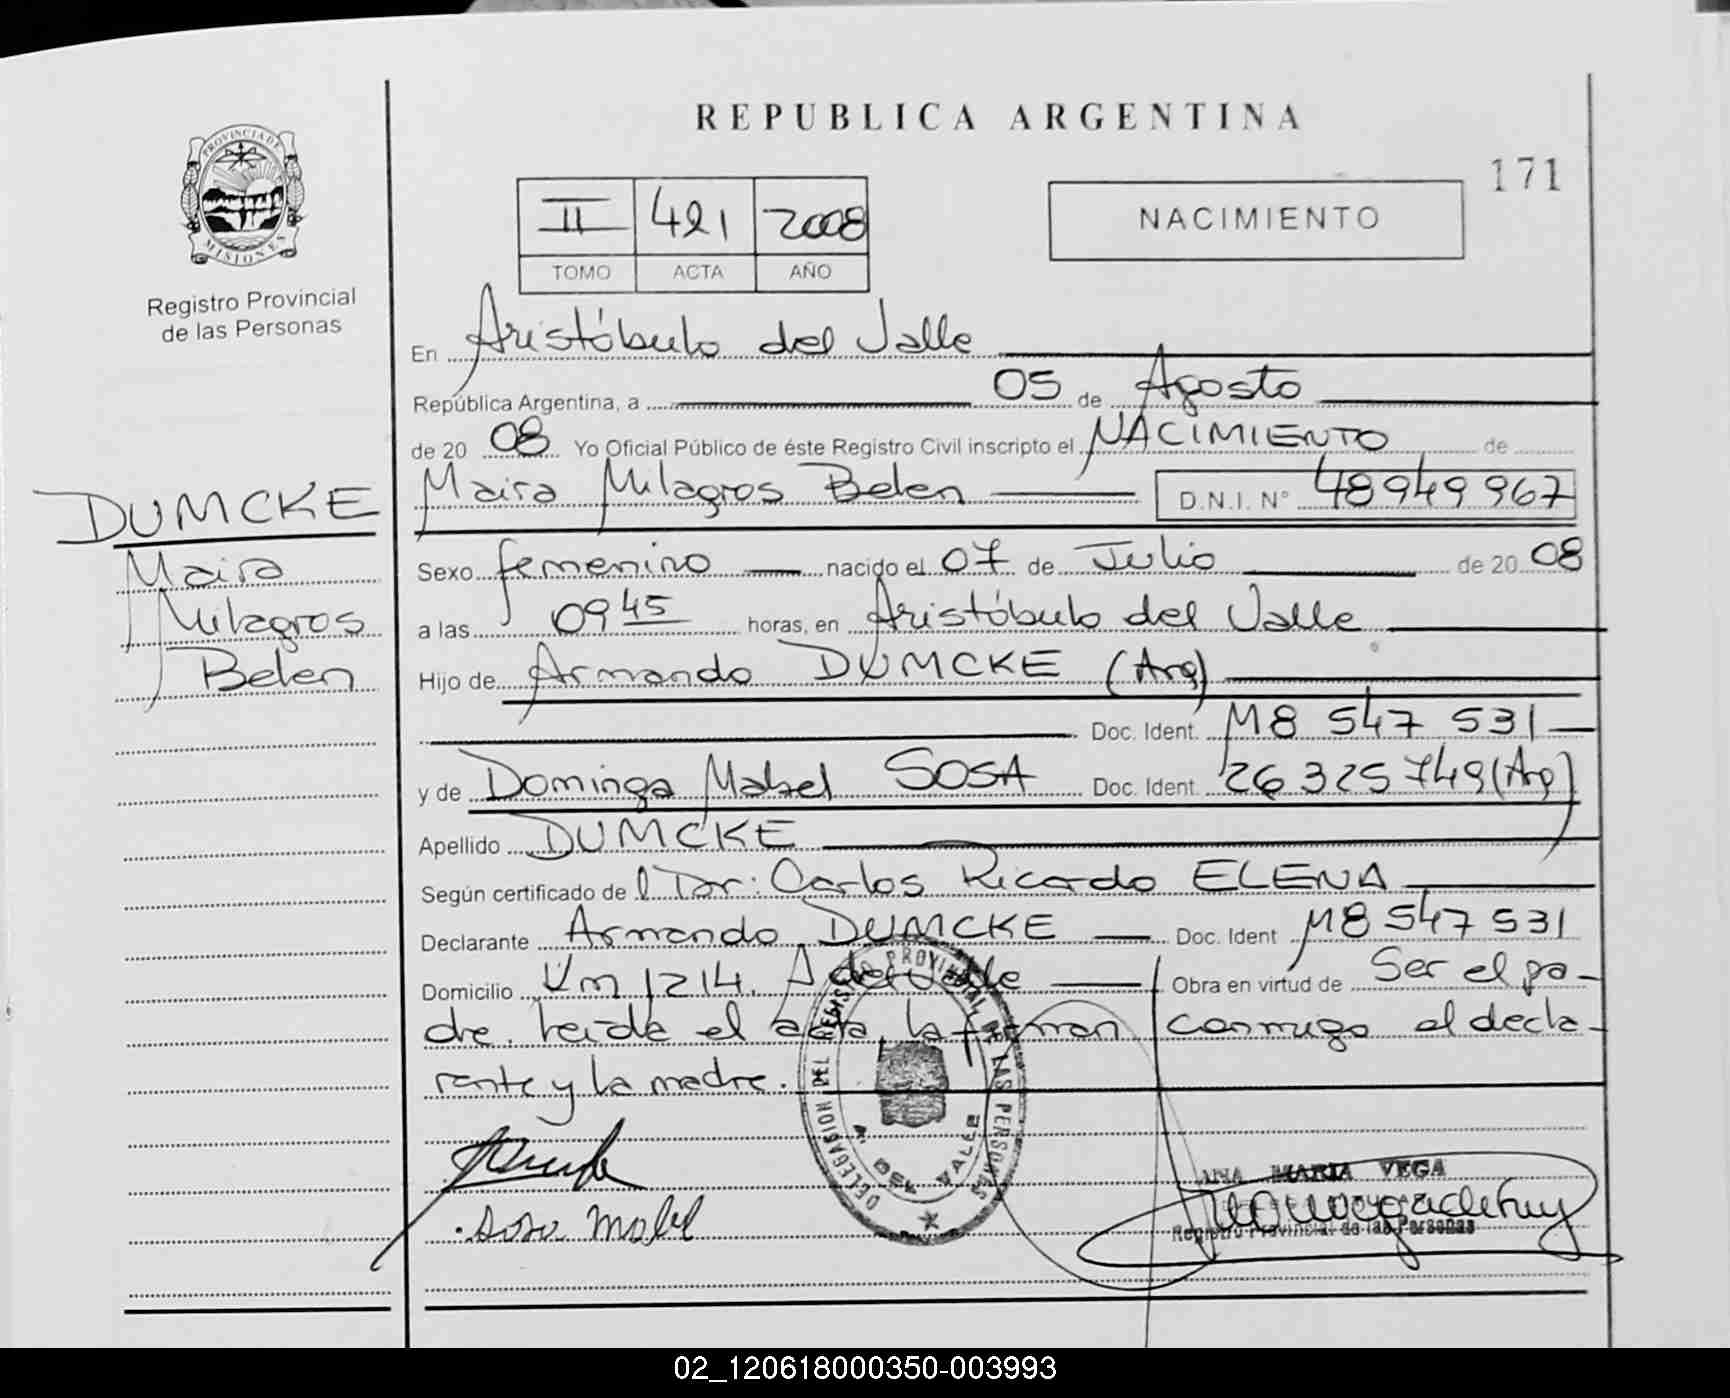 REPUBLICA ARGENTINA
171
PROVINCIA DE MISIONES
Registro Provincial
de las Personas
II 421 2008
TOMO ACTA AÑO
NACIMIENTO
En Aristóbulo del Valle
República Argentina, a 05 de Agosto
de 2008 Yo Oficial Público de éste Registro Civil inscripto el NACIMIENTO de
Maira Milagros Belen D.N.I. N° 48949967
DUMCKE
Maira
Milagros
Belen
Sexo femenino nacido el 07 de Julio de 2008
a las 09 45 horas, en Aristóbulo del Valle
Hijo de Armando DUMCKE (Arg)
Doc. Ident. M8 547 531
y de Dominga Mabel SOSA Doc. Ident. 26 325 749 (Arg)
Apellido DUMCKE
Según certificado del Dr: Carlos Ricardo ELENA
Declarante Armando DUMCKE Doc. Ident M8 547 531
Domicilio Km 1214. A del Valle Obra en virtud de Ser el pa-
dre. leida el acta, la firman conmigo el decla-
rante y la madre.
DELEGACION DEL REGISTRO PROVINCIAL DE LAS PERSONAS
A. DEL VALLE
Sosa Mabel
ANA MARIA VEGA
Registro Provincial de las Personas
02_120618000350-003993